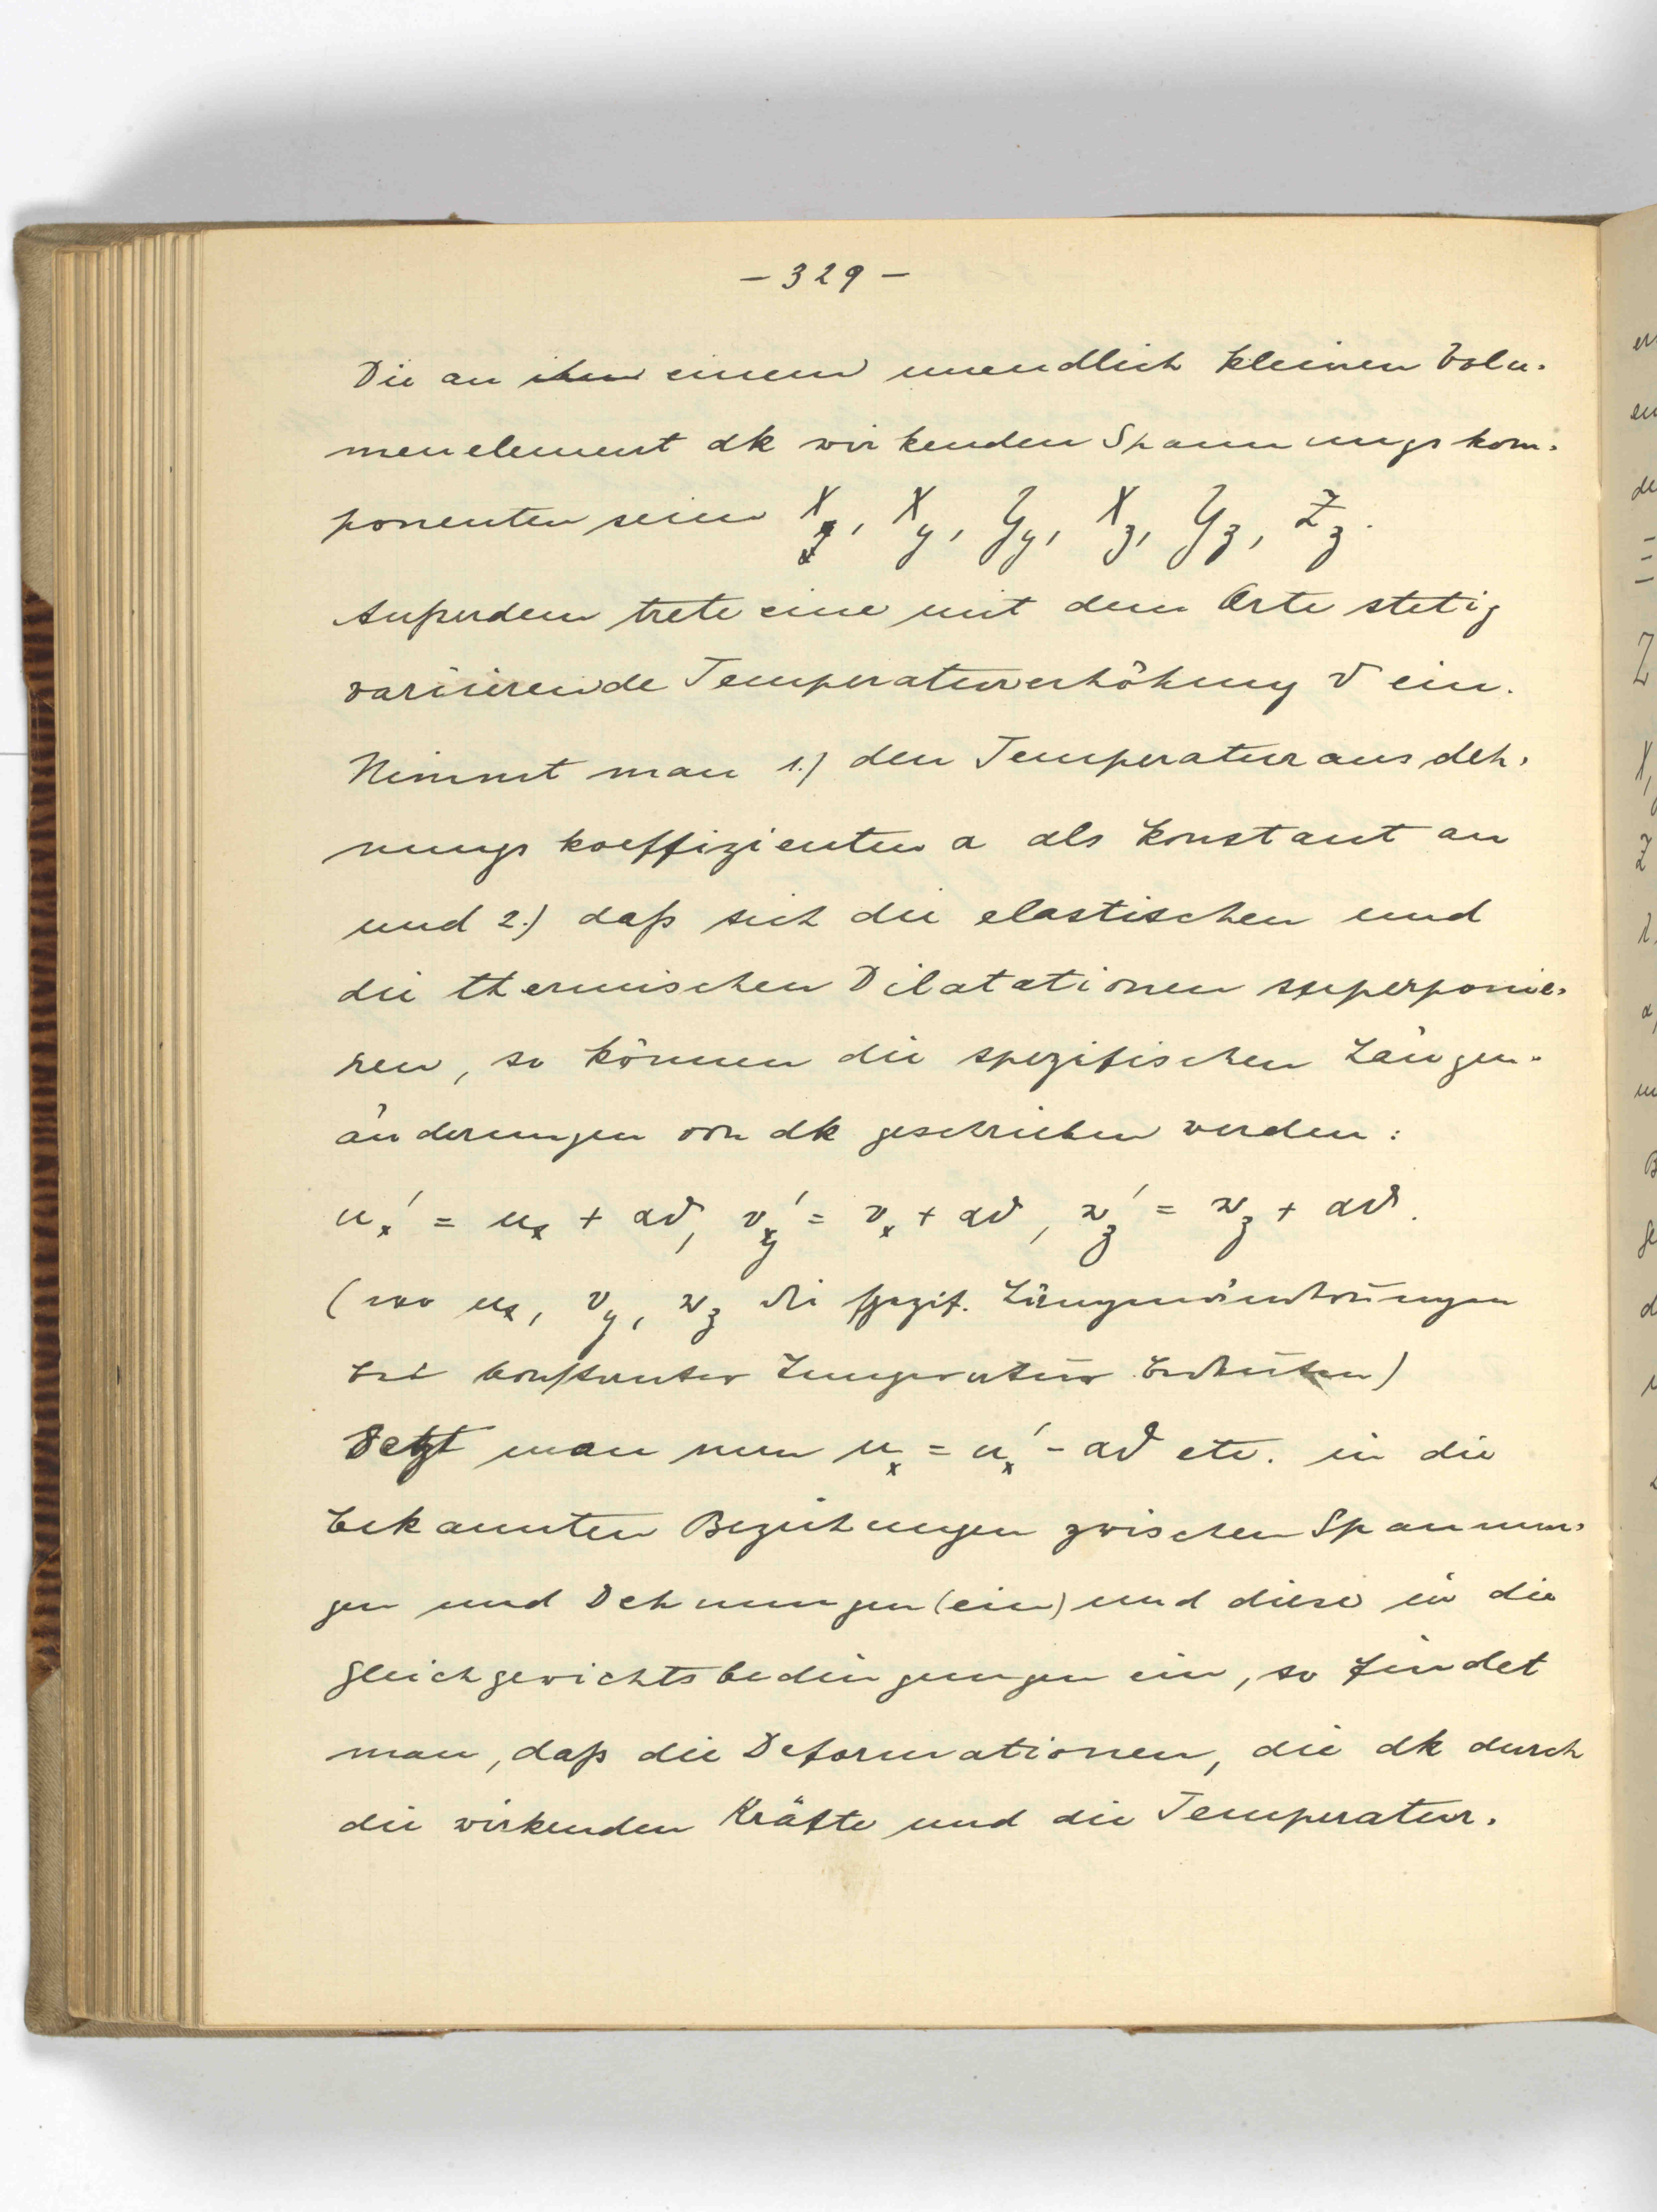 – 329 –
Die an ihm einem unendlich kleinen Volu-
menelement dk wirkenden Spannungskom-
ponenten seien X_x, X_y, Y_y, X_z, Y_z, Z_z.
Außerdem trete eine mit dem Orte stetig
variierende Temperaturerhöhung ϑ ein.
Nimmt man 1.) den Temperaturausdeh-
nungskoeffizienten α als konstant an
und 2.) daß sich die elastischen und
die thermischen Dilatationen superponie-
ren, so können die spezifischen Längen-
änderungen von dk geschrieben werden:
u_x' = u_x + αϑ, v_y' = v_x + αϑ, w_z' = w_z + αϑ.
(wo u_x, v_y, w_z die spezif. Längenänderungen
bei konstanter Temperatur bedeuten)
Setzt man nun u_x = u_x' – αϑ etc. in die
bekannten Beziehungen zwischen Spannun-
gen und Dehnungen (ein) und diese in die
Gleichgewichtsbedingungen ein, so findet
man, daß die Deformationen, die dk durch
die wirkenden Kräfte und die Temperatur-